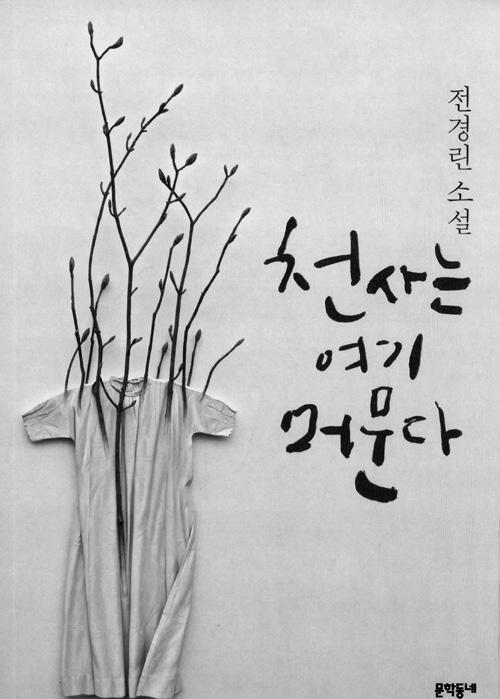 전경린 소설
천사는
여기
머문다
문학동네